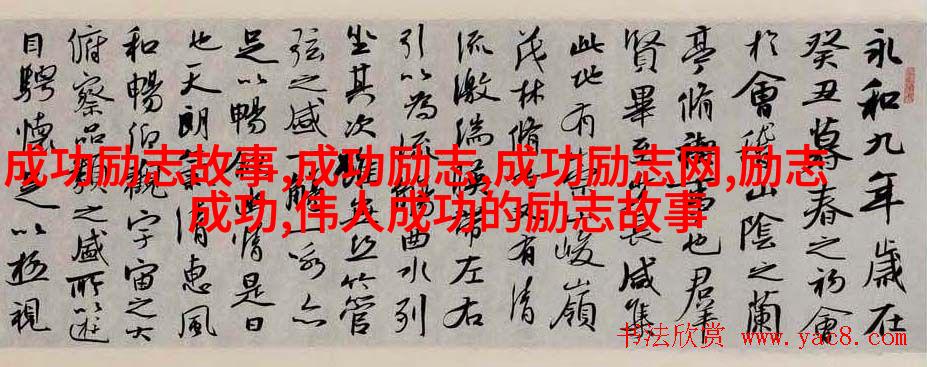 永和九年歲在
癸丑暮春之初會
於會稽山陰之蘭
亭脩禊事也群
賢畢至少長咸集
此地有崇山峻嶺
茂林脩竹又有清
流激湍映帶左右
引以為流觴曲水列
坐其次雖無絲竹管
弦之盛一觴一詠亦
足以暢敘幽情是日
也天朗氣清惠風
和暢仰觀宇宙之大
俯察品類之盛所以遊
目騁懷足以極視
成功励志故事,成功励志,成功励志网,励志
成功,伟人成功的励志故事
书法欣赏 www.yac8.com